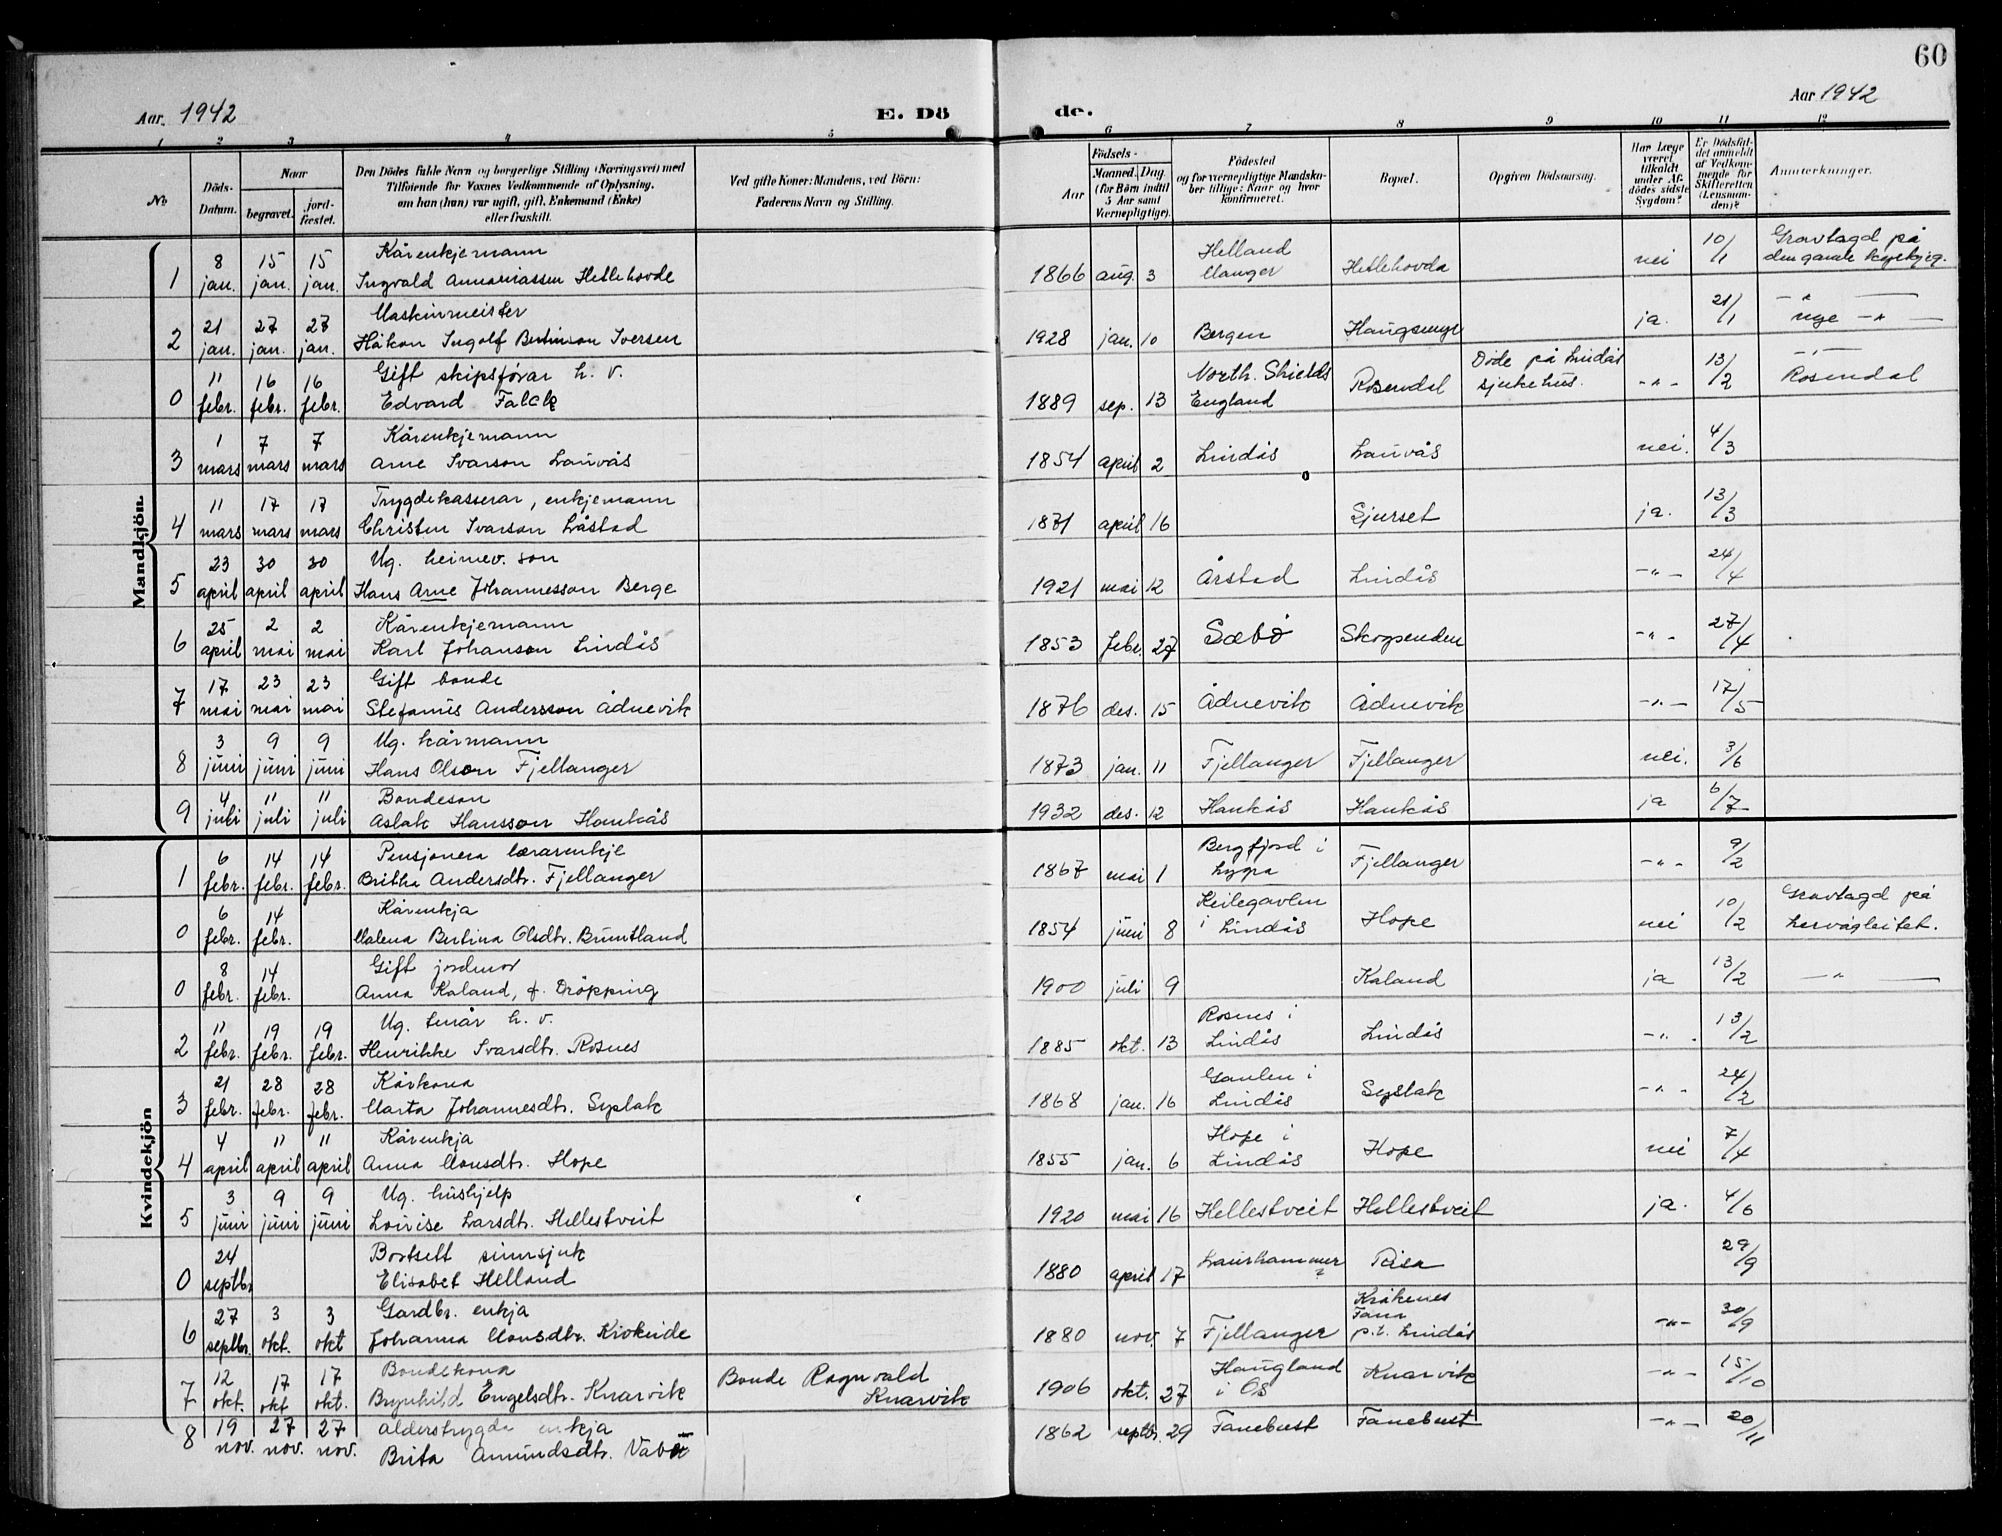 60
Aar. 1942 E. Dö de. Aar 1942
1 2 3 4 5 6 7 8 9 10 11 12
No
Döds-Datum.
Naar
begravet.
jord-fæstet.
Den Dödes fulde Navn og borgerlige Stilling (Næringsvei) med
Tilföiende for Voxnes Vedkommende af Oplysning,
om han (hun) var ugift, gift, Enkemand (Enke)
eller fraskilt.
Ved gifte Koner: Mandens, ved Börn:
Faderens Navn og Stilling.
Födsels-
Aar
Maaned. Dag
(for Börn indtil
5 Aar samt
Værnepligtige).
Födested
og for værnepligtige Mandska-
ber tillige: Naar og hvor
konfirmeret.
Bopæl.
Opgiven Dödsaarsag.
Har Læge
været
tilkaldt
under Af-
dödes sidste
Sygdom?
Er Dödsfal-
det anmeldt
af Vedkom-
mende for
Skifteretten
(Lensman-
den)?
Anmærkninger.
Mandkjön.
1 8 jan. 15 jan. 15 jan. Kårenkjemann
Ingvald Annaniassen Hetlehovde 1866 aug. 3 Helland Manger Hetlehovda nei 10/1 Gravlagd på den gamle kyrkjeg.
2 21 jan. 27 jan. 27 jan. Maskinmeister
Håkon Ingolf Berntinson Iversen 1928 jan. 10 Bergen Haugsmyr ja. 21/1 - " - nye - " -
0 11 febr. 16 febr. 16 febr. Gift skipsførar h. v.
Edvard Falck 1889 sep. 13 North. Shields England Rosendal Døde på Lindås sjukehus. - " - 13/2 - " - Rosendal
3 1 mars 7 mars 7 mars Kårenkjemann
Arne Ivarson Lauvås 1854 april 2 Lindås Lauvås nei. 4/3
4 11 mars 17 mars 17 mars Trygdekasserar, enkjemann
Christen Ivarson Låstad 1871 april 16 Sjurset ja. 13/3
5 23 april 30 april 30 april Ug. heimev. son
Hans Arne Johannesson Berge 1921 mai 12 Årstad Lindås - " - 24/4
6 25 april 2 mai 2 mai Kårenkjemann
Karl Johanson Lindås 1853 febr. 27 Sæbø Skogsenden - " - 27/4
7 17 mai 23 mai 23 mai Gift bonde
Stefanus Andersson Ådnevik 1876 des. 15 Ådnevik Ådnevik - " - 17/5
8 3 juni 9 juni 9 juni Ug. kårmann
Hans Olson Fjellanger 1873 jan. 11 Fjellanger Fjellanger nei. 3/6
9 4 juli 11 juli 11 juli Bondeson
Aslak Hansson Haukås 1932 des. 12 Haukås Haukås ja 6/7
Kvindekjön
1 6 febr. 14 febr. 14 febr. Pensjonera lærarenkje
Britha Andersdtr. Fjellanger 1867 mai 1 Bergfjord i Fjellanger - " - 9/2
0 6 febr. 14 febr. Kårenkja
Malena Bertina Olsdtr. Bruntland 1854 juni 8 Keilegavlen i Lindås Hope nei 10/2 Gravlagd på hervågleitet.
0 8 febr. 14 febr. Gift jordmor
Anna Kaland, f. Dröpping 1900 juli 9 Kaland ja 13/2 - " -
2 11 febr. 19 febr. 19 febr. Ug. småk. h. v.
Henrikke Ivarsdtr. Rosnes 1885 okt. 13 Rosnes i Lindås Lindås - " - 13/2
3 21 febr. 28 febr. 28 febr. Kårkona
Marta Johannesdtr. Syslak 1868 jan. 16 Gaulen i Lindås Syslak - " - 24/2
4 4 april 11 april 11 april Kårenkja
Anna Monsdtr. Hope 1855 jan. 6 Hope i Lindås Hope nei 7/4
5 3 juni 9 juni 9 juni Ug. hushjelp
Lovise Larsdtr. Hellestveit 1920 mai 16 Hellestveit Hellestveit ja. 4/6
0 24 septbr Bortsett sinnsjuk
Elisabet Helland 1880 april 17 Laurhammer ? Risa 29/9
6 27 septbr. 3 okt. 3 okt Gardbr. enkja
Johanna Monsdtr. Kvokeide 1880 nov. 7 Fjellanger Kråkenes Fana p.t. Lindås - " - 30/9
7 12 okt. 17 okt 17 okt. Bondekona
Brynhild Engelsdtr. Knarvik Bonde Ragnvald Knarvik 1906 okt. 27 Haugland i Os Knarvik - " - 15/10
8 19 nov. 27 nov. 27 nov. Alderstrygda enkja
Brita Amundsdtr. Vabø 1862 septbr. 29 Fanebust Fanebust - " - 20/11